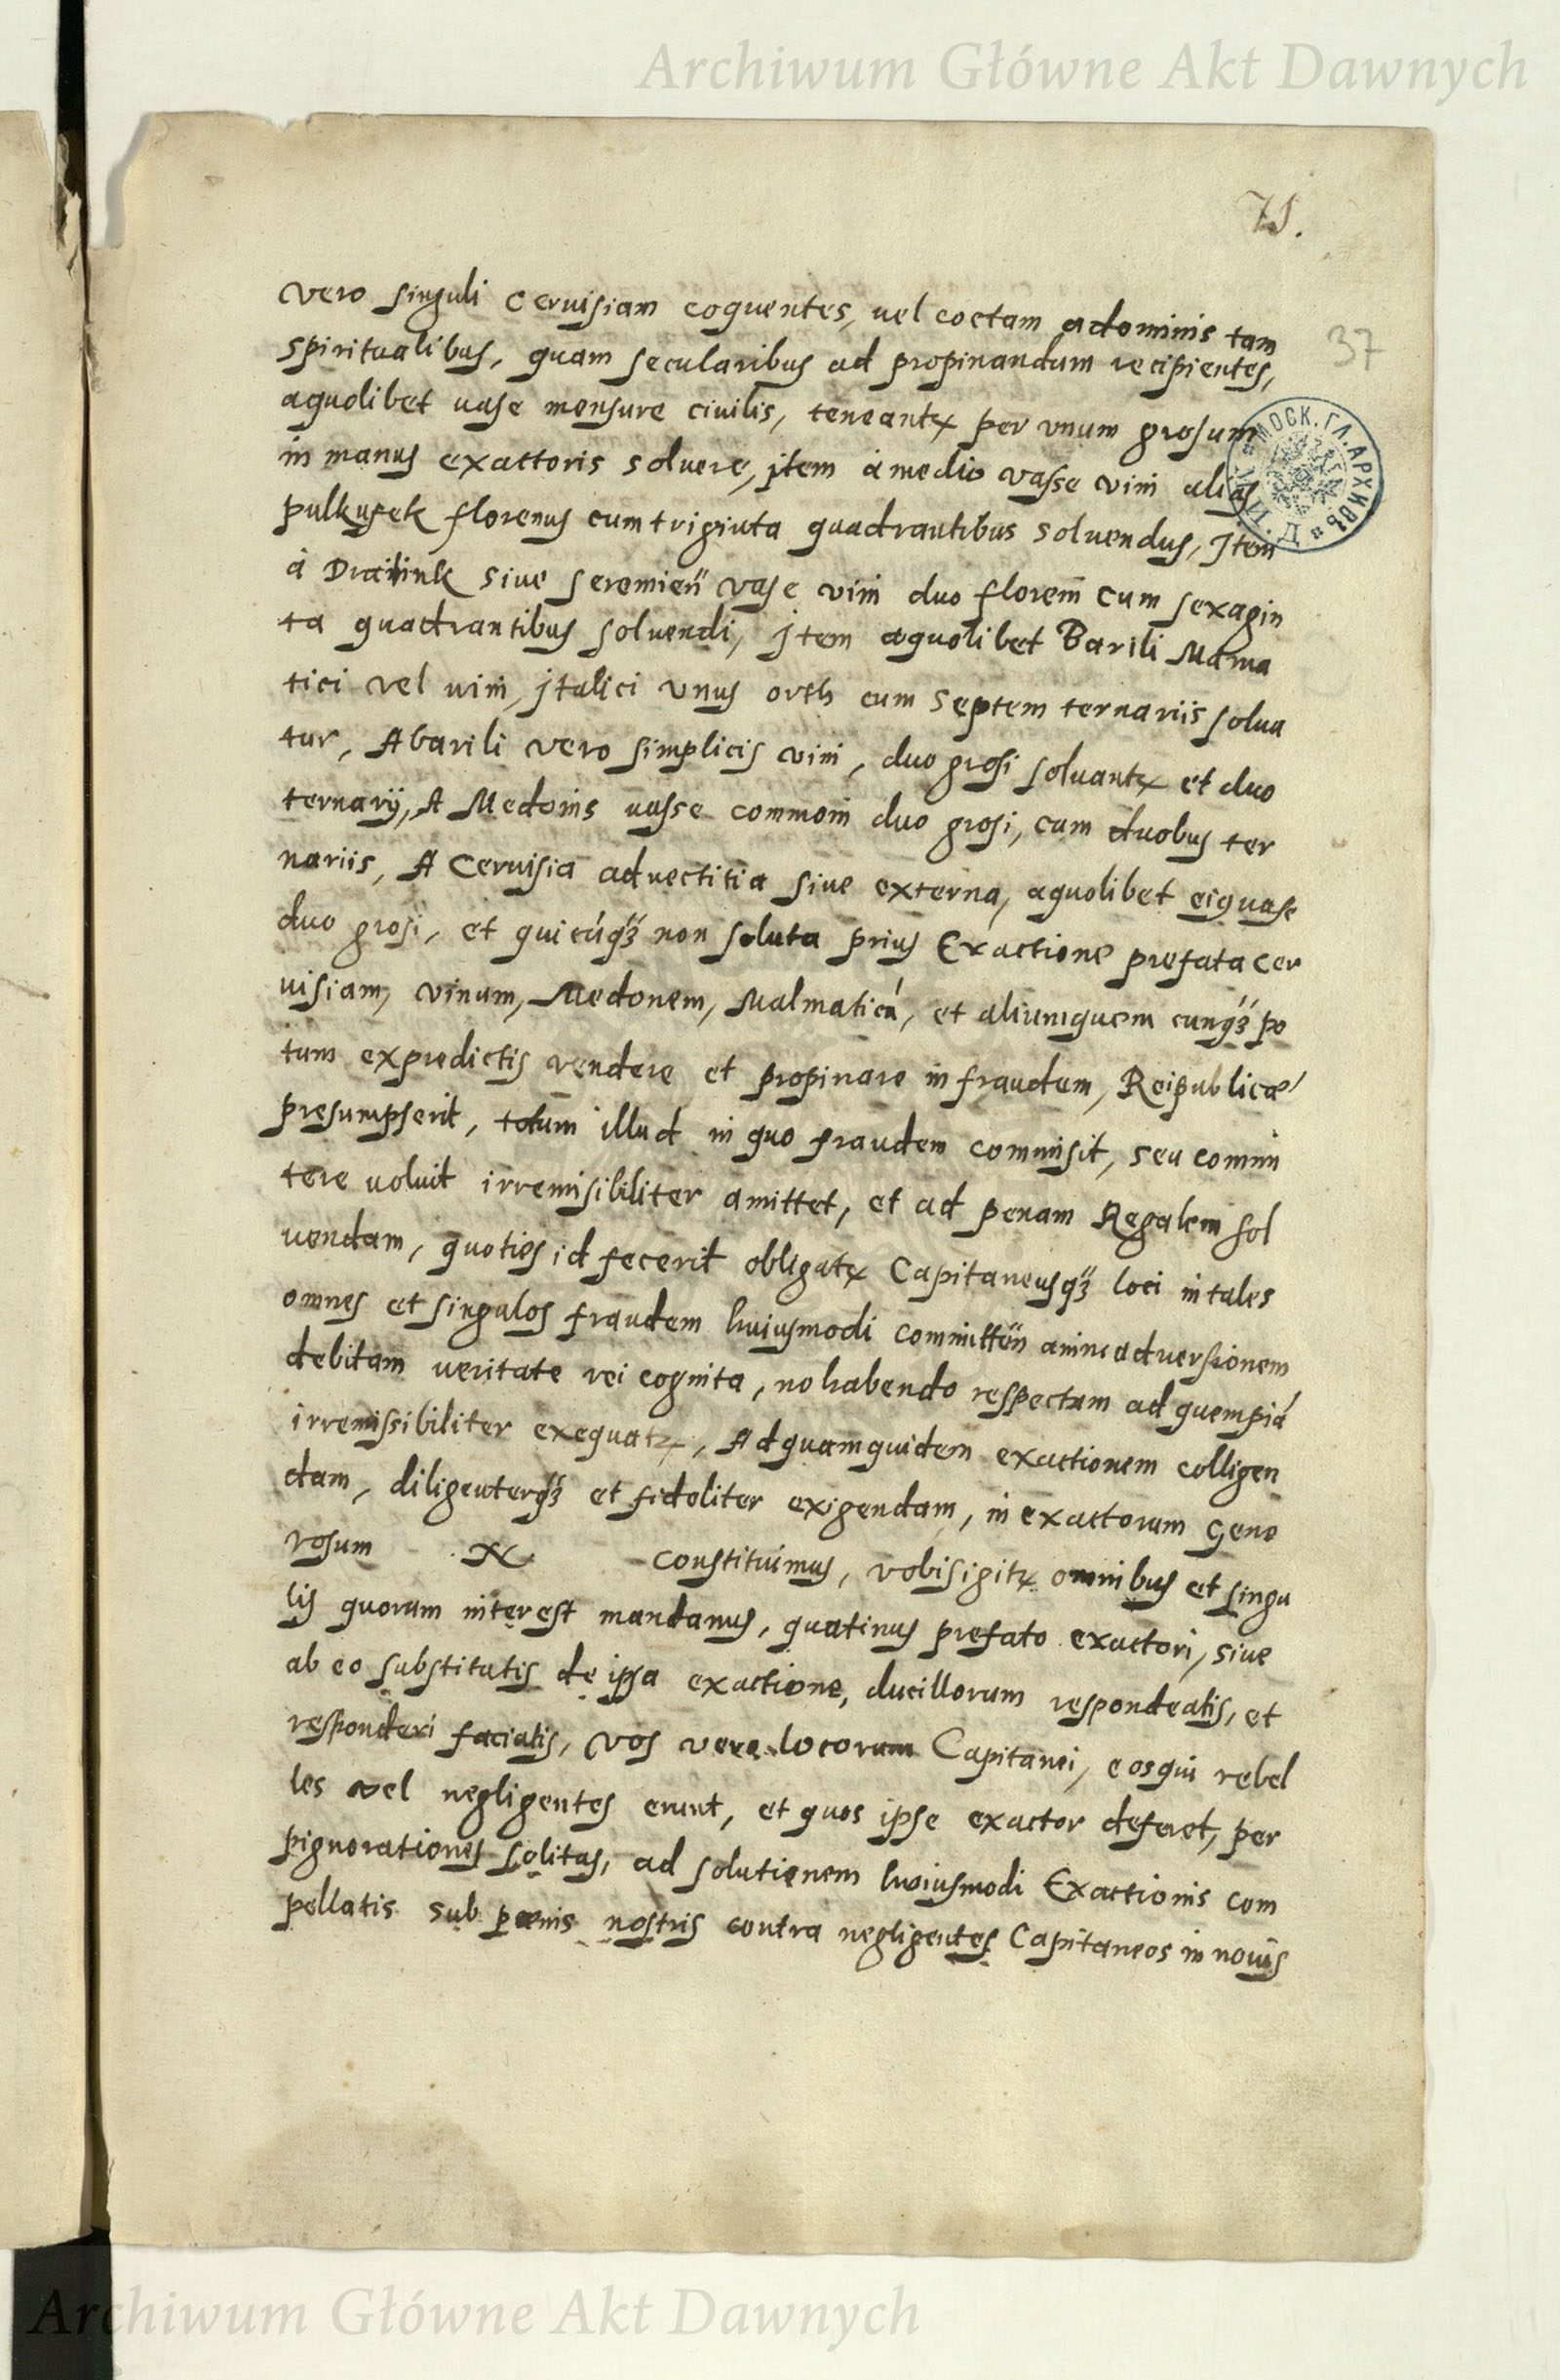 Archiwum Główne Akt Dawnych
71.
37
vero singuli Ceruisiam coquentes, uel coctam adominis tam
spiritualibus, quam secularibus ad propinandum recipientes,
aquolibet uase mensure ciuilis, teneantꝝ per vnum grosum
in manus exactoris soluere, jtem á medio vasse vini alias
pulkufek florenus cum triginta quadrantibus soluendus, Jtem
á Drailink siue seremień vase vini duo floreni cum sexagin
ta quadrantibus soluendi, Jtem aquolibet Barili Malma
tici vel uini jtalici vnus orth cum septem ternariis solua
tur, Abarili vero simplicis vini, duo grosi soluantꝝ et duo
ternarij, A Medonis uasse communi duo grosi, cum duobus ter
nariis, A Ceruisia aduectitia siue externa, aquolibet eiquase
duo grosi, et quicúqꝫ non soluta prius Exactione prefata cer
uisiam, vinum, Medonem, Malmaticá, et aliumquem cunqꝫ po
tum expredictis vendere et propinare in fraudem, Reipublicæ
presumpserit, totum illud in quo fraudem commisit, seu commi
tere uoluit irremisibiliter amittet, et ad penam Regalem sol
uendam, quoties id fecerit obligatꝝ Capitaneusqꝫ loci in tales
omnes et singulos fraudem huiusmodi committen̄ animaduersionem
debitam ueritate rei cognita, no habendo respectum ad quempiá
irremissibiliter exequatꝝ, Ad quamquidem exactionem colligen
dam, diligenterqꝫ et fideliter exigendam, in exactorum gene
rosum N constituimus, vobis igitꝝ omnibus et singu
lis quorum interest mandamus, quatinus prefato exactori, siue
ab eo substitutis de ipsa exactione, ducillorum respondeatis, et
responderi faciatis, vos vero locorum Capitanei, eosqui rebel
les vel negligentes erunt, et quos ipse exactor deferet, per
pignorationes solitas, ad solutionem huiusmodi Exactionis com
pellatis sub pænis nostris contra negligentes Capitaneos in nouis
МОСК. ГЛ. АРХИВЪ
Archiwum Główne Akt Dawnych